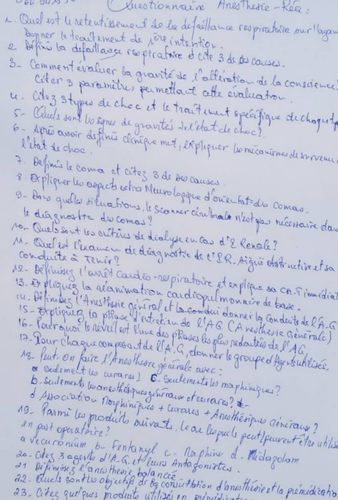 Questionnaire Anesthésie-Réa:
1. Quel est le retentissement de la défaillance respiratoire sur l'
donner le traitement de 1ère intention.
2. Définir la défaillance respiratoire et citez 3 de ses causes.
3. Comment évaluer la gravité de l'altération de la conscience?
Citer 3 paramètres permettant cette évaluation.
4. Citez 3 types de choc et le traitement spécifique de chaque
5. Quels sont les signes de gravités de l'état de choc?
6. Après avoir définis cliniquement, expliquer les mécanismes de survenue
l'état de choc.
7. Définis le coma et citez 3 de ses causes.
8. Expliquer les aspects Neurologique d'orientat° du comas.
9. Dans quelles situations, le scanner cérébral n'est pas nécessaire dans
le diagnostic du comas?
10. Quels sont les critères de dialyse en cas d'I Renale?
11. Quel est l'examen de diagnostic de l'I.R. Aiguë obstructive et sa
conduite à tenir?
12. Définissez l'arrêt cardio-respiratoire et explique sa CAT immédiate
13. Expliquez la réanimation cardiopulmonaire de base.
14. Définissez l'Anesthésie général et la conduite de l'A.G
15. Expliquez la phase d'entretien de l'AG (Anesthésie Générale)
16. Pourquoi le réveil est l'une des phases les plus redoutées de l'AG.
17. Pour chaque composant de l'AG, donner le groupe d' utilisée.
18. Peut-on faire l'Anesthésie générale avec:
a seulement les curares? c. seulement les morphiniques?
b. seulement les anesthésiques généraux et curares?
d Association morphiniques + curares + Anesthésiques Généraux?
19. Parmi les produits suivants, lequel peut être utilisé
en post opératoire?
a vécuronium b. Fentanyl c. Naplone d. Midazolam
20. Citez 3 agents d'A.G et leurs Antagonistes.
21 Définissez l'anesthésie balancée.
22. Quels sont les objectifs de la consultation d'anesthésie et la prémédication
23. Citez quelques produits utilisés en prémédication